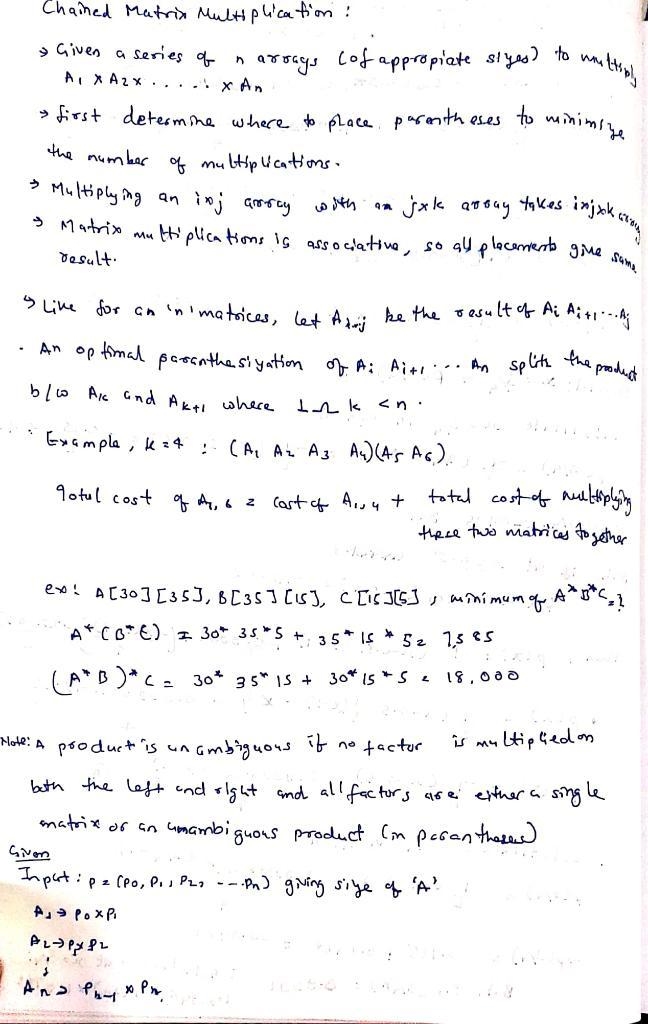 Chained Matrix Multiplication :
→ Given a series of n arrays (of appropiate sizes) to multiply
A1 X A2 X ...... x An
→ first determine where to place parentheses to minimize
the number of multiplications.
→ Multiplying an ixj array with an jxk array takes ixjxk array
→ Matrix multiplications is associative, so all placements give same
result.
→ Like for an 'n' matrices, let Ai..j be the result of Ai Ai+1 ... Aj
. An optimal paranthesization of Ai Ai+1 ... An splits the product
b/w Ak and Ak+1 where k < n .
Example, k=4 : (A1 A2 A3 A4)(A5 A6)
Total cost of A1,6 = cost of A1..4 + total cost of multiplying
these two matrices together
ex: A[30][35], B[35][15], C[15][5], minimum of A*B*C=?
A*(B*C) = 30* 35*5 + 35*15*5= 7,585
(A*B)*C = 30* 35* 15 + 30*15*5 = 18,000
Note: A product is unambiguous if no factor is multiplied on
both the left and right and all factors are either a single
matrix or an unambiguous product (in parantheses)
Given
Input : p = (p0, p1, p2, ---pn) giving size of 'A'
A1→ p0xp1
A2→p1xp2
An→ pn-1 x pn